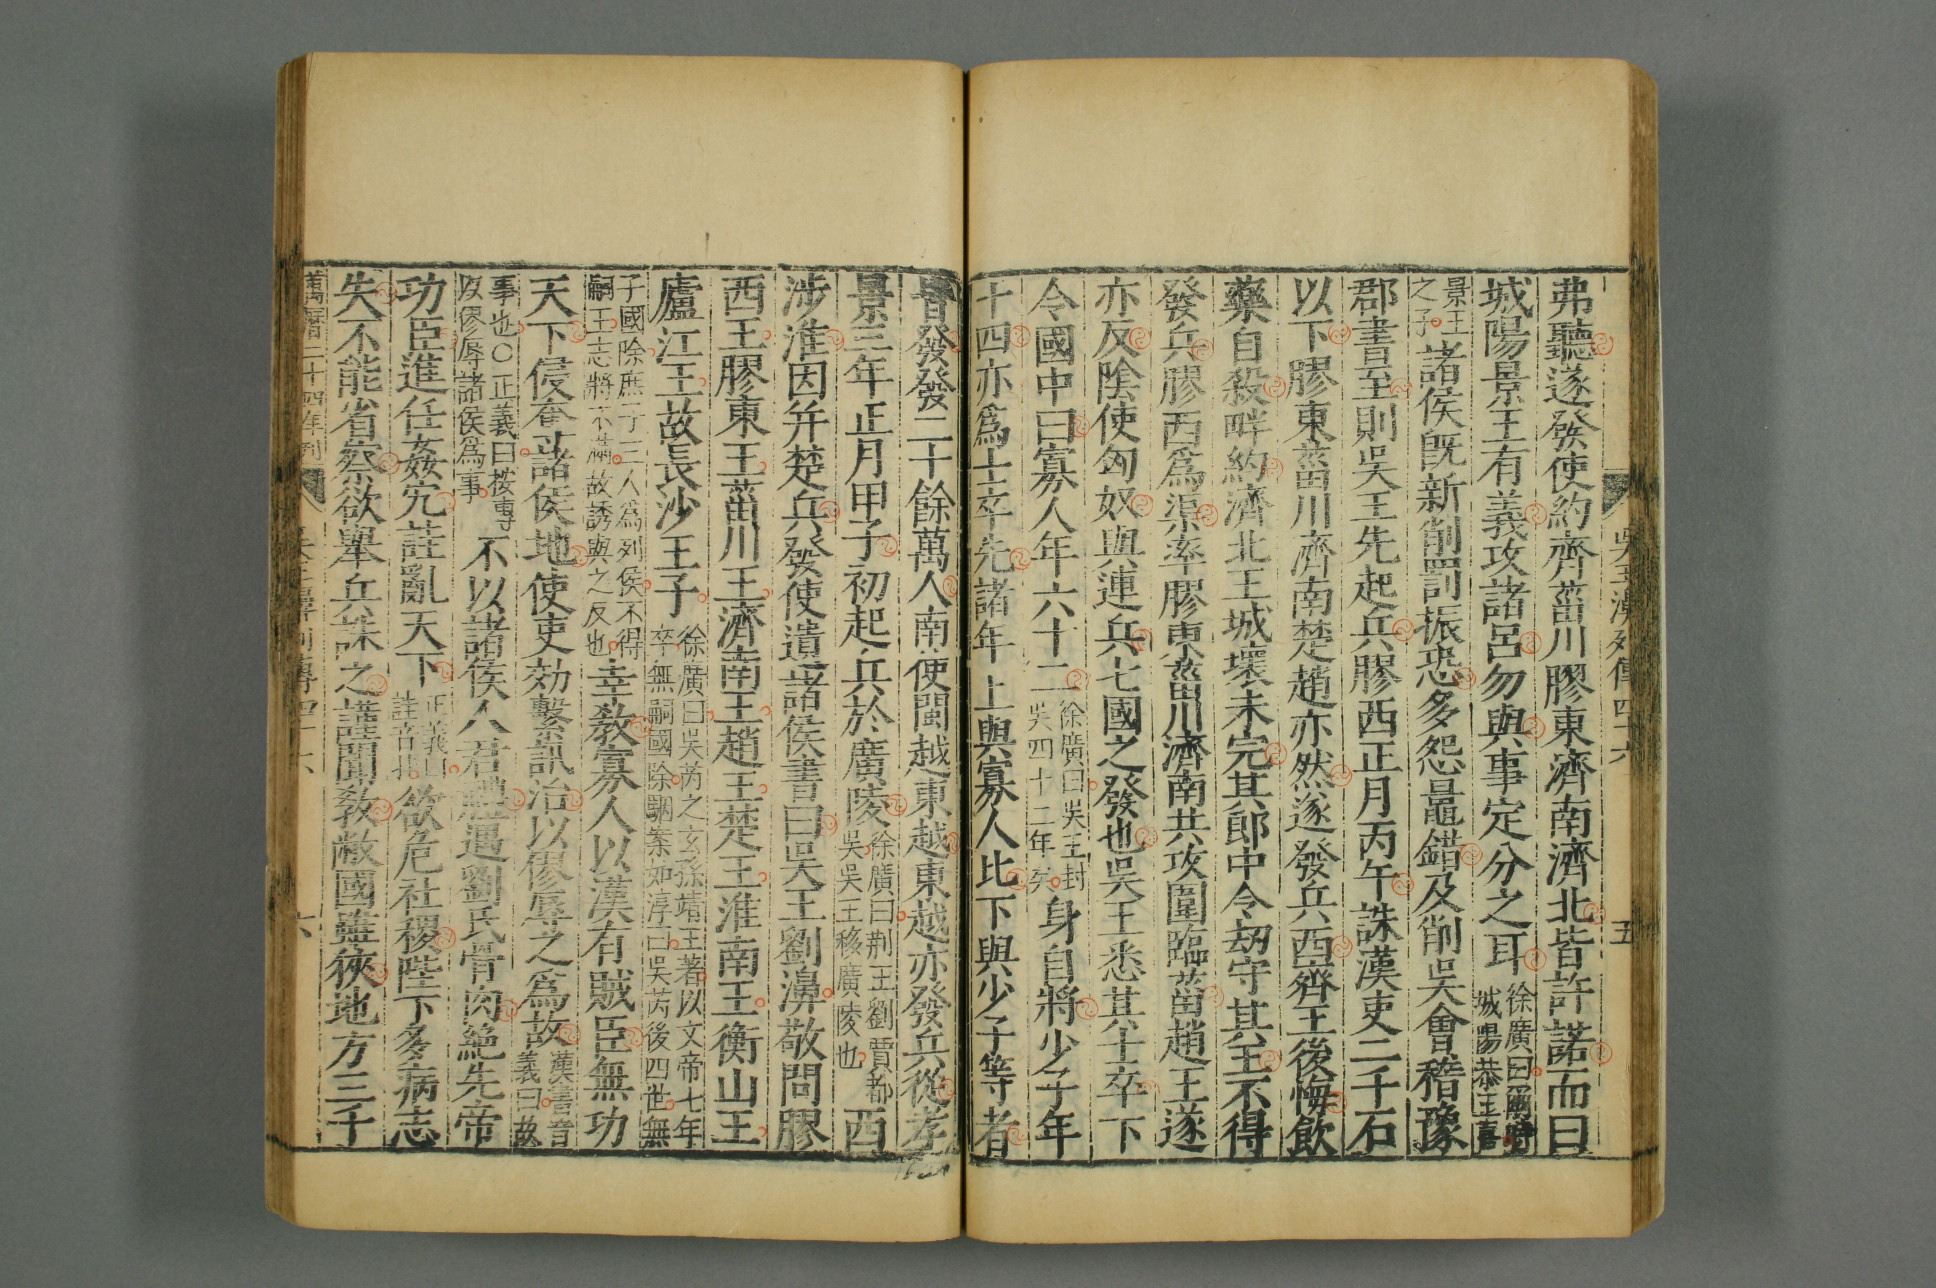 吳王濞列傳四十六
五
弗聽遂發使約齊菑川膠東濟南濟北皆許諾而曰
城陽景王有義攻諸呂勿與事定分之耳徐廣曰爾時城陽恭王喜
景王之子諸侯旣新削罰振恐多怨鼂錯及削吳會稽豫
郡書至則吳王先起兵膠西正月丙午誅漢吏二千石
以下膠東菑川濟南楚趙亦然遂發兵西齊王後悔飲
藥自殺畔約濟北王城壞未完其郎中令劫守其王不得
發兵膠西爲渠率膠東菑川濟南共攻圍臨菑趙王遂
亦反陰使匈奴與連兵七國之發也吳王悉其士卒下
令國中曰寡人年六十二徐廣曰吳王封吳四十二年矣身自將少子年
十四亦爲士卒先諸年上與寡人比下與少子等者
皆發發二十餘萬人南使閩越東越東越亦發兵從孝
景三年正月甲子初起兵於廣陵徐廣曰荆王劉賈都吳吳王移廣陵也西
涉淮因并楚兵發使遺諸侯書曰吳王劉濞敬問膠
西王膠東王菑川王濟南王趙王楚王淮南王衡山王
廬江王故長沙王子徐廣曰吳芮之玄孫靖王著以文帝七年卒無嗣國除駰案如淳曰吳芮後四世無
子國除庶子二人爲列侯不得嗣王志將不滿故誘與之反也幸敎寡人以漢有賊臣無功
天下侵奪諸侯地使吏劾繫訊治以僇辱之爲故漢書音義曰故
事也○正義曰按專以僇辱諸侯爲事不以諸侯人君禮遇劉氏骨肉絕先帝
功臣進任姦宄詿亂天下正義曰詿音卦欲危社稷陛下多病志
失不能省察欲舉兵誅之謹聞敎敝國雖狹地方三千
萬曆二十四年刊
吳王濞列傳四十六
六